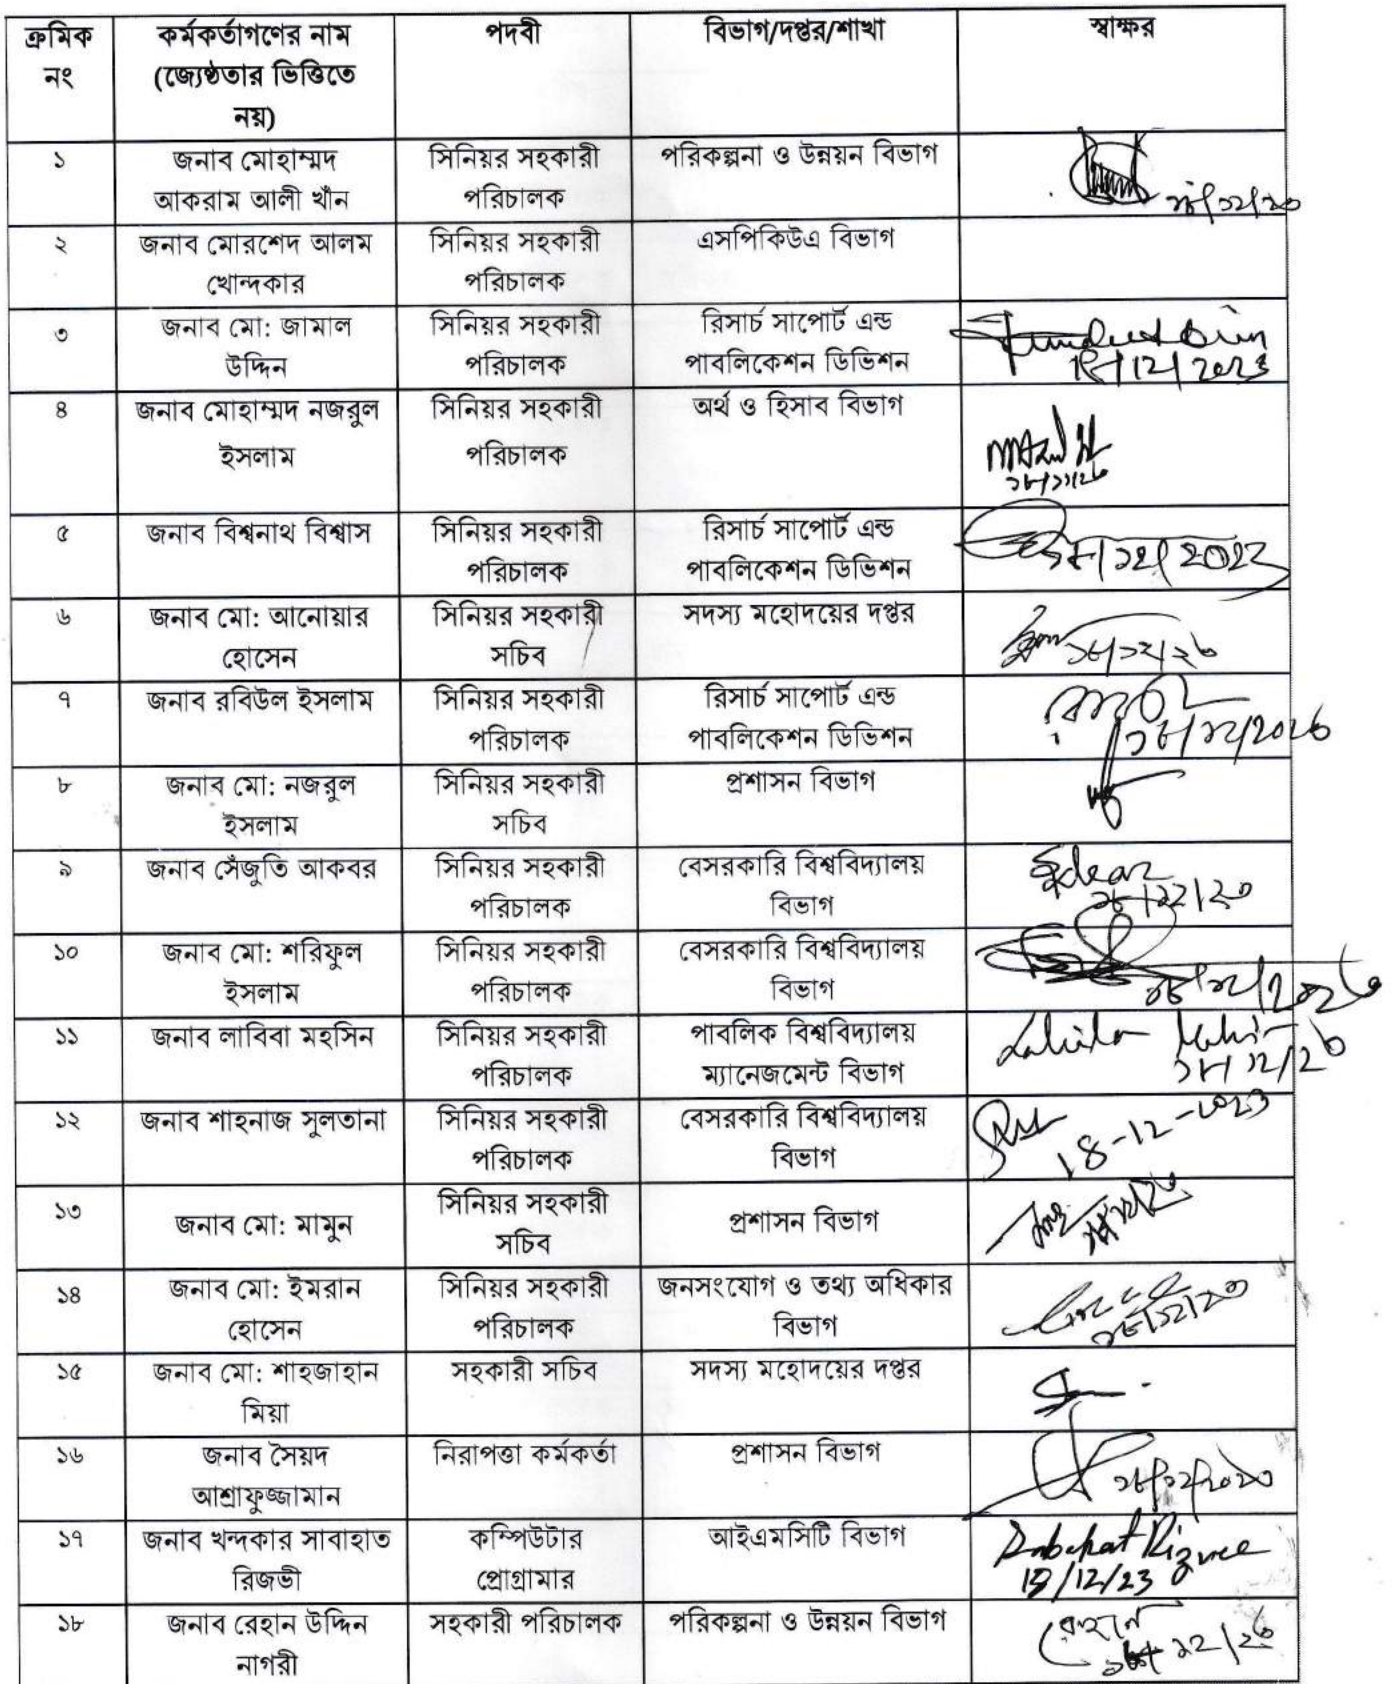 ক্রমিক নং	কর্মকর্তাগণের নাম (জ্যেষ্ঠতার ভিত্তিতে নয়)	পদবী	বিভাগ/দপ্তর/শাখা	স্বাক্ষর
১	জনাব মোহাম্মদ আকরাম আলী খাঁন	সিনিয়র সহকারী পরিচালক	পরিকল্পনা ও উন্নয়ন বিভাগ
২	জনাব মোরশেদ আলম খোন্দকার	সিনিয়র সহকারী পরিচালক	এসপিকিউএ বিভাগ
৩	জনাব মো: জামাল উদ্দিন	সিনিয়র সহকারী পরিচালক	রিসার্চ সাপোর্ট এন্ড পাবলিকেশন ডিভিশন	18/12/2023
৪	জনাব মোহাম্মদ নজরুল ইসলাম	সিনিয়র সহকারী পরিচালক	অর্থ ও হিসাব বিভাগ
৫	জনাব বিশ্বনাথ বিশ্বাস	সিনিয়র সহকারী পরিচালক	রিসার্চ সাপোর্ট এন্ড পাবলিকেশন ডিভিশন
৬	জনাব মো: আনোয়ার হোসেন	সিনিয়র সহকারী সচিব	সদস্য মহোদয়ের দপ্তর	১৮/১২/২৩
৭	জনাব রবিউল ইসলাম	সিনিয়র সহকারী পরিচালক	রিসার্চ সাপোর্ট এন্ড পাবলিকেশন ডিভিশন	১৮/১২/২০২৩
৮	জনাব মো: নজরুল ইসলাম	সিনিয়র সহকারী সচিব	প্রশাসন বিভাগ
৯	জনাব সেঁজুতি আকবর	সিনিয়র সহকারী পরিচালক	বেসরকারি বিশ্ববিদ্যালয় বিভাগ	১৮/১২/২৩
১০	জনাব মো: শরিফুল ইসলাম	সিনিয়র সহকারী পরিচালক	বেসরকারি বিশ্ববিদ্যালয় বিভাগ	১৮/১২/২০২৩
১১	জনাব লাবিবা মহসিন	সিনিয়র সহকারী পরিচালক	পাবলিক বিশ্ববিদ্যালয় ম্যানেজমেন্ট বিভাগ	১৮/১২/২৩
১২	জনাব শাহনাজ সুলতানা	সিনিয়র সহকারী পরিচালক	বেসরকারি বিশ্ববিদ্যালয় বিভাগ	18-12-2023
১৩	জনাব মো: মামুন	সিনিয়র সহকারী সচিব	প্রশাসন বিভাগ
১৪	জনাব মো: ইমরান হোসেন	সিনিয়র সহকারী পরিচালক	জনসংযোগ ও তথ্য অধিকার বিভাগ	১৮/১২/২৩
১৫	জনাব মো: শাহজাহান মিয়া	সহকারী সচিব	সদস্য মহোদয়ের দপ্তর
১৬	জনাব সৈয়দ আশ্রাফুজ্জামান	নিরাপত্তা কর্মকর্তা	প্রশাসন বিভাগ	১৮/১২/২০২৩
১৭	জনাব খন্দকার সাবাহাত রিজভী	কম্পিউটার প্রোগ্রামার	আইএমসিটি বিভাগ	Sabahat Rizvee 18/12/23
১৮	জনাব রেহান উদ্দিন নাগরী	সহকারী পরিচালক	পরিকল্পনা ও উন্নয়ন বিভাগ	রেহান ১৮/১২/২৩